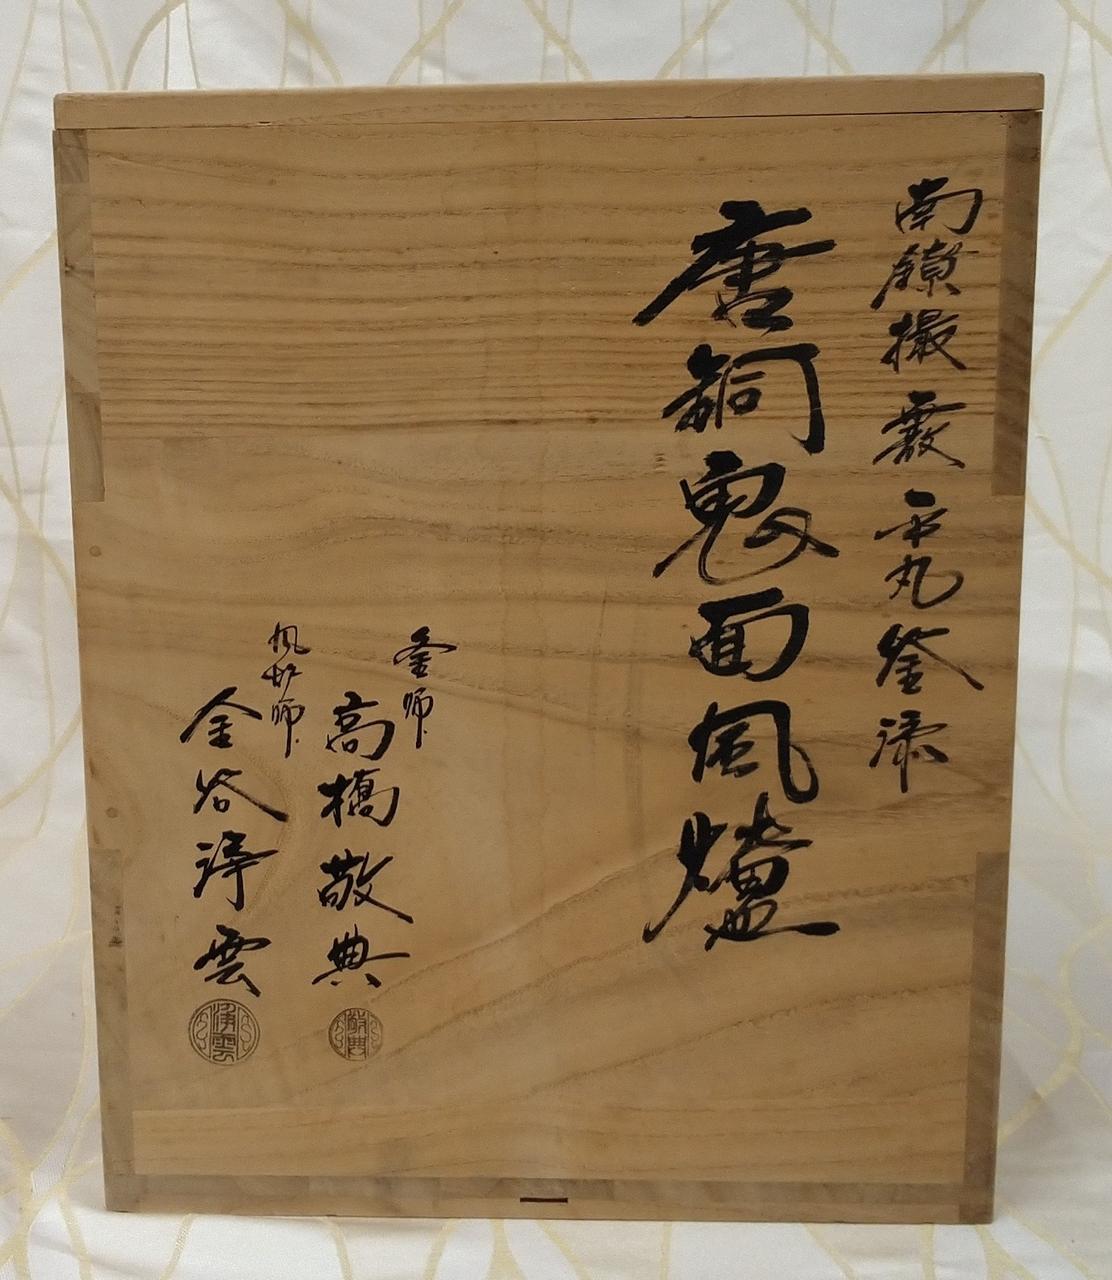 南鐐撮霰平丸釜添
唐銅鬼面風爐
釜師
高橋敬典
風炉師
金谷浄雲
敬典
浄雲